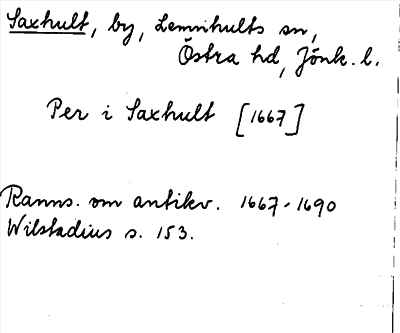 Saxhult, by, Lemnhults sn,
Östra hd, Jönk. l.
Per i Saxhult [1667]
Ranns. om antikv. 1667-1690
Wilstadius s. 153.